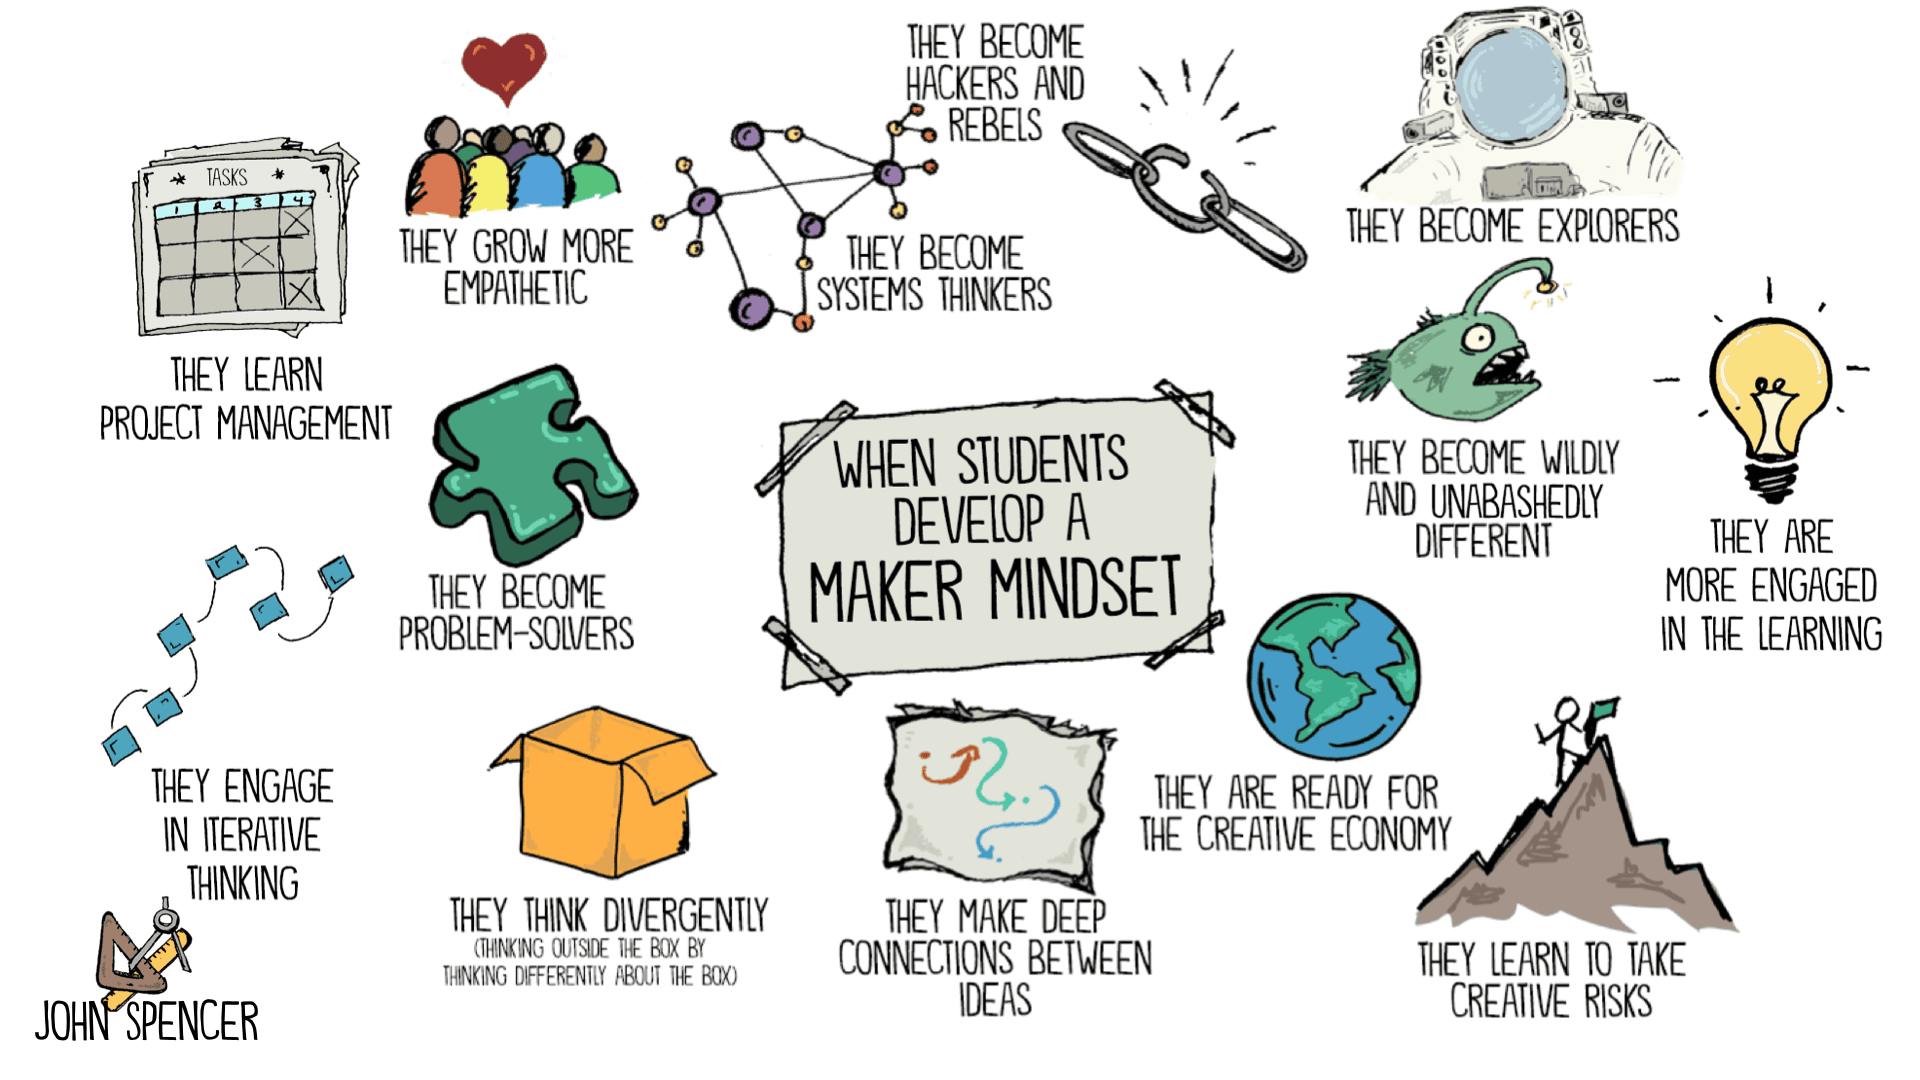 WHEN STUDENTS
DEVELOP A
MAKER MINDSET
* TASKS *
1 2 3 4
THEY LEARN
PROJECT MANAGEMENT
THEY GROW MORE
EMPATHETIC
THEY BECOME
SYSTEMS THINKERS
THEY BECOME
HACKERS AND
REBELS
THEY BECOME EXPLORERS
THEY BECOME WILDLY
AND UNABASHEDLY
DIFFERENT
THEY ARE
MORE ENGAGED
IN THE LEARNING
THEY BECOME
PROBLEM-SOLVERS
THEY ENGAGE
IN ITERATIVE
THINKING
THEY THINK DIVERGENTLY
(THINKING OUTSIDE THE BOX BY
THINKING DIFFERENTLY ABOUT THE BOX)
THEY MAKE DEEP
CONNECTIONS BETWEEN
IDEAS
THEY ARE READY FOR
THE CREATIVE ECONOMY
THEY LEARN TO TAKE
CREATIVE RISKS
JOHN SPENCER